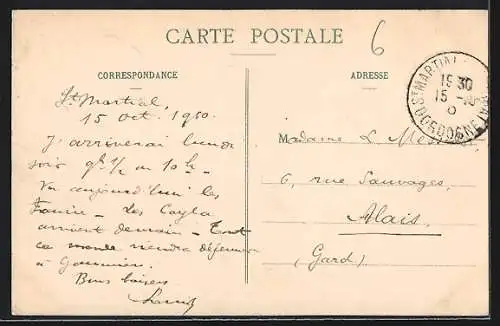 CARTE POSTALE
6
CORRESPONDANCE
ADRESSE
St Martial,
15 oct. 1910.
J'arriverai lundi
soir 9h 1/2 ou 10h -
Vu aujourd'hui les
- Les Cayla
arrivent demain - Tout
ce monde viendra déjeuner
à
Bons baisers
ST MARTIAL
19 30
15 -10
DORDOGNE
Madame L.
6, rue Sauvages,
Alais.
(Gard)